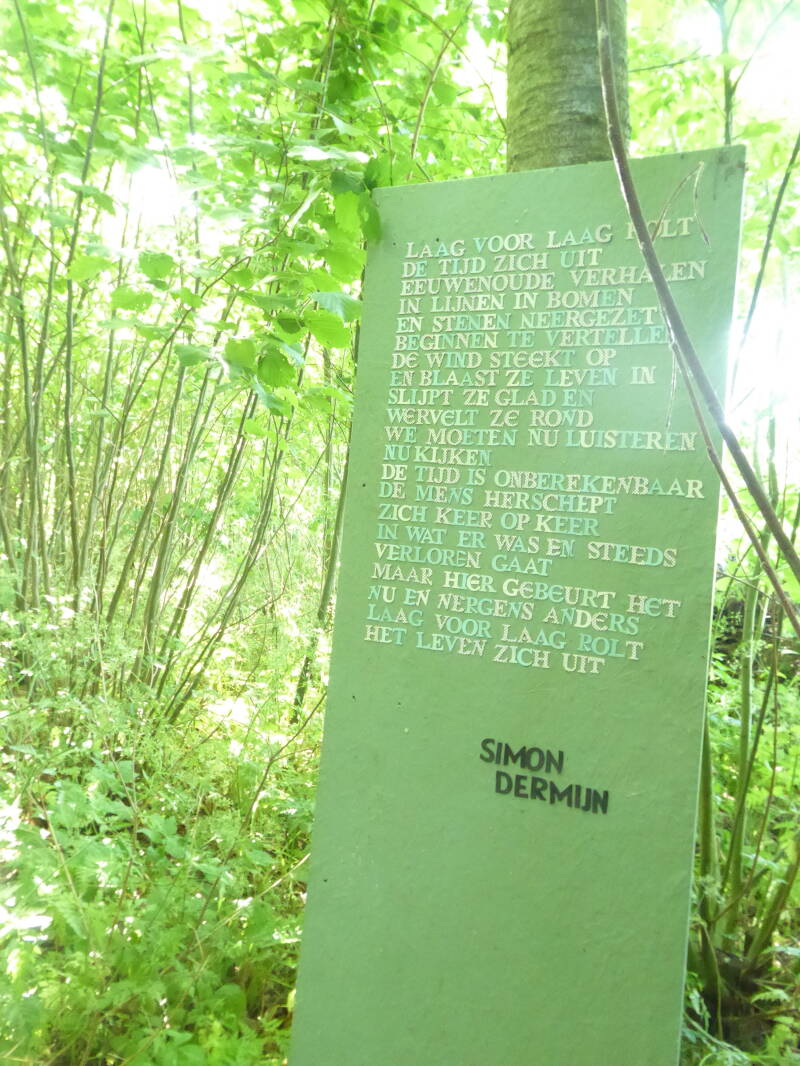 LAAG VOOR LAAG ROLT
DE TIJD ZICH UIT
EEUWENOUDE VERHALEN
IN LIJNEN IN BOMEN
EN STENEN NEERGEZET
BEGINNEN TE VERTELLEN
DE WIND STEEKT OP
EN BLAAST ZE LEVEN IN
SLIJPT ZE GLAD EN
WERVELT ZE ROND
WE MOETEN NU LUISTEREN
NU KIJKEN
DE TIJD IS ONBEREKENBAAR
DE MENS HERSCHEPT
ZICH KEER OP KEER
IN WAT ER WAS EN STEEDS
VERLOREN GAAT
MAAR HIER GEBEURT HET
NU EN NERGENS ANDERS
LAAG VOOR LAAG ROLT
HET LEVEN ZICH UIT
SIMON
DERMIJN